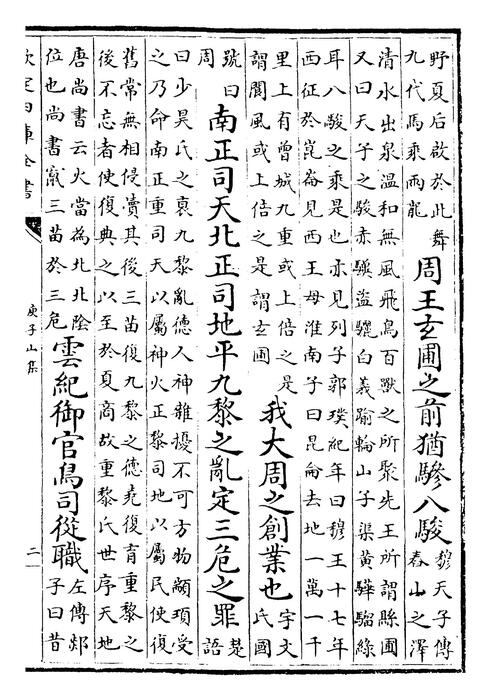 野夏后啟於此舞
九代馬乘兩龍
周王玄圃之前猶驂八駿
穆天子傳
春山之澤
清水出泉溫和無風飛鳥百獸之所聚先王所謂縣圃
又曰天子之駿赤驥盜驪白義踰輪山子渠黃驊騮綠
耳八駿之乘是也亦見列子郭璞紀年曰穆王十七年
西征於崑崙見西王母淮南子曰昆侖去地一萬一千
里上有曾城九重或上倍之是
謂閬風或上倍之是謂玄圃
我大周之創業也
宇文
氏國
號曰
周
南正司天北正司地平九黎之亂定三危之罪
楚
語
曰少昊氏之衰九黎亂德人神雜擾不可方物顓頊受
之乃命南正重司天以屬神火正黎司地以屬民使復
舊常無相侵瀆其後三苗復九黎之德堯復育重黎之
後不忘者使復典之以至於夏商故重黎氏世序天地
唐尚書云火當為北北陰
位也尚書竄三苗於三危
雲紀御官鳥司從職
左傳郯
子曰昔
欽定四庫全書
庾子山集
二